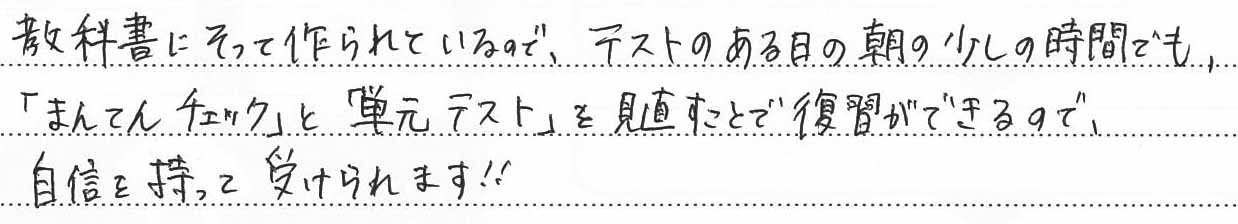 教科書にそって作られているので、テストのある日の朝の少しの時間でも、
「まんてんチェック」と「単元テスト」を見直すことで復習ができるので、
自信を持って受けられます!!